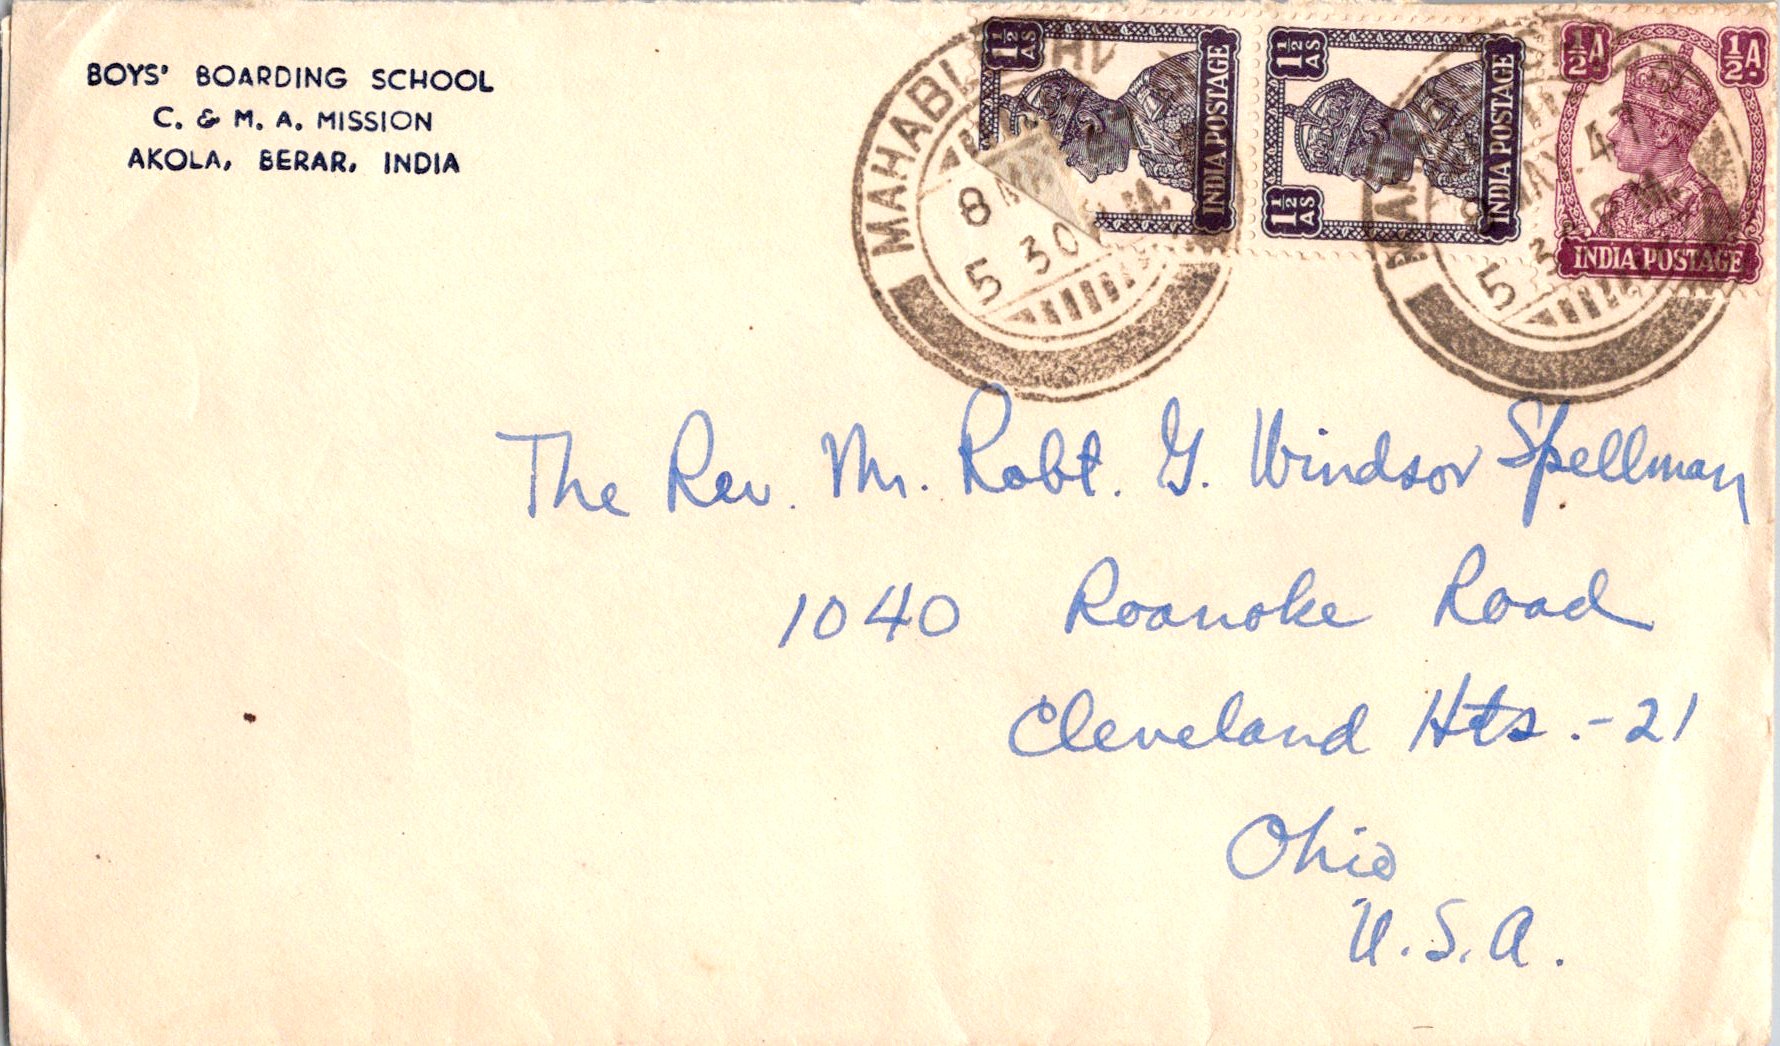 BOYS' BOARDING SCHOOL
C. & M. A. MISSION
AKOLA, BERAR, INDIA
1½ AS
INDIA POSTAGE
1½ AS
1½ AS
INDIA POSTAGE
½A
½A.
INDIA POSTAGE
5 30
The Rev. Mr. Robt. G. Windsor Spellman
1040 Roanoke Road
Cleveland Hts. - 21
Ohio
U.S.A.